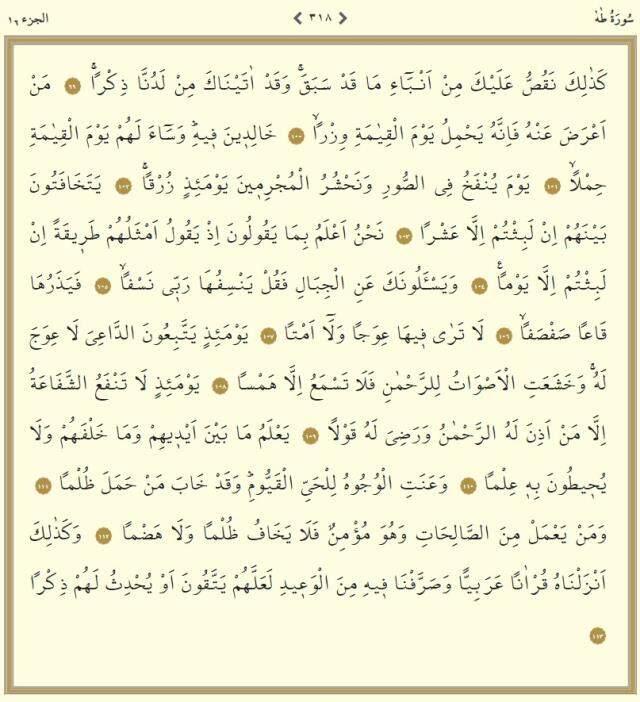 سُورَةُ طٰهٰ
٣١٨
الجزء ١٦
كَذٰلِكَ نَقُصُّ عَلَيْكَ مِنْ اَنْـبَٓاءِ مَا قَدْ سَبَقَۚ وَقَدْ اٰتَيْنَاكَ مِنْ لَدُنَّا ذِكْراًۚ ٩٩ مَنْ
اَعْرَضَ عَنْهُ فَاِنَّهُ يَحْمِلُ يَوْمَ الْقِيٰمَةِ وِزْراًۙ ١٠٠ خَالِد۪ينَ ف۪يهِۜ وَسَٓاءَ لَهُمْ يَوْمَ الْقِيٰمَةِ
حِمْلاًۙ ١٠١ يَوْمَ يُنْفَخُ فِي الصُّورِ وَنَحْشُرُ الْمُجْرِم۪ينَ يَوْمَئِذٍ زُرْقاًۚ ١٠٢ يَتَخَافَتُونَ
بَيْنَهُمْ اِنْ لَبِثْتُمْ اِلَّا عَشْراً ١٠٣ نَحْنُ اَعْلَمُ بِمَا يَقُولُونَ اِذْ يَقُولُ اَمْثَلُهُمْ طَر۪يقَةً اِنْ
لَبِثْتُمْ اِلَّا يَوْماً۟ ١٠٤ وَيَسْـَٔلُونَكَ عَنِ الْجِبَالِ فَقُلْ يَنْسِفُهَا رَبّ۪ي نَسْفاًۙ ١٠٥ فَيَذَرُهَا
قَاعاً صَفْصَفاًۙ ١٠٦ لَا تَرٰى ف۪يهَا عِوَجاً وَلَٓا اَمْتاً ١٠٧ يَوْمَئِذٍ يَتَّبِعُونَ الدَّاعِيَ لَا عِوَجَ
لَهُۚ وَخَشَعَتِ الْاَصْوَاتُ لِلرَّحْمٰنِ فَلَا تَسْمَعُ اِلَّا هَمْساً ١٠٨ يَوْمَئِذٍ لَا تَنْفَعُ الشَّفَاعَةُ
اِلَّا مَنْ اَذِنَ لَهُ الرَّحْمٰنُ وَرَضِيَ لَهُ قَوْلاً ١٠٩ يَعْلَمُ مَا بَيْنَ اَيْد۪يهِمْ وَمَا خَلْفَهُمْ وَلَا
يُح۪يطُونَ بِه۪ عِلْماً ١١٠ وَعَنَتِ الْوُجُوهُ لِلْحَيِّ الْقَيُّومِۜ وَقَدْ خَابَ مَنْ حَمَلَ ظُلْماً ١١١
وَمَنْ يَعْمَلْ مِنَ الصَّالِحَاتِ وَهُوَ مُؤْمِنٌ فَلَا يَخَافُ ظُلْماً وَلَا هَضْماً ١١٢ وَكَذٰلِكَ
اَنْزَلْنَاهُ قُرْاٰناً عَرَبِياًّ وَصَرَّفْنَا ف۪يهِ مِنَ الْوَع۪يدِ لَعَلَّهُمْ يَتَّقُونَ اَوْ يُحْدِثُ لَهُمْ ذِكْراً
١١٣